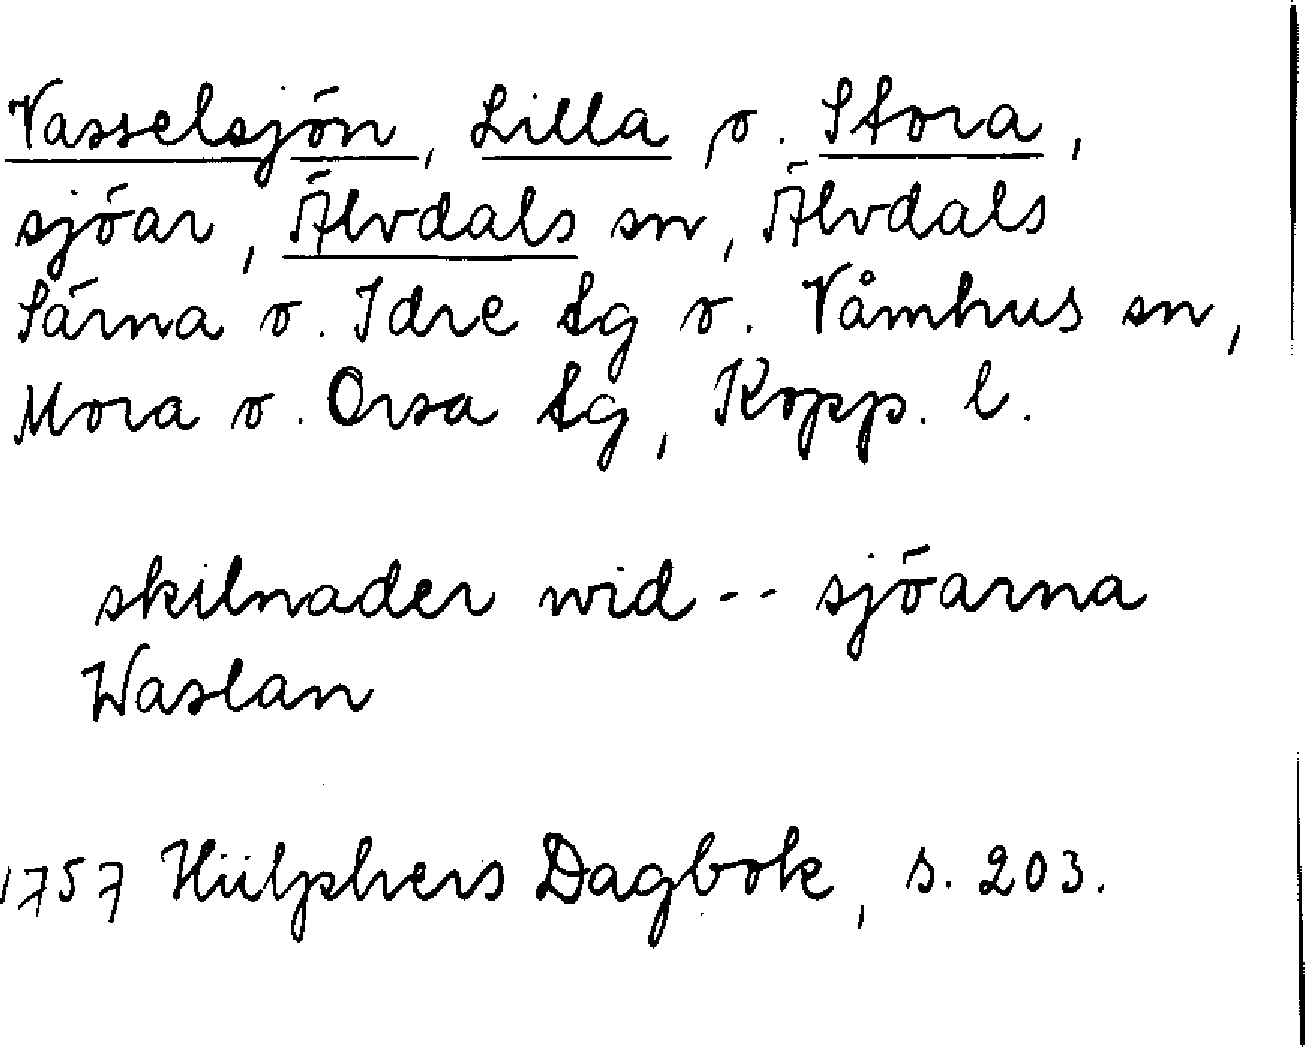 Vasselsjön, Lilla o. Stora,
sjöar, Älvdals sn, Älvdals
Särna o. Idre tg o. Våmhus sn,
Mora o. Orsa tg, Kopp. l.
skilnader wid -- sjöarna
Waslan
1757 Hülphers Dagbok, s. 203.